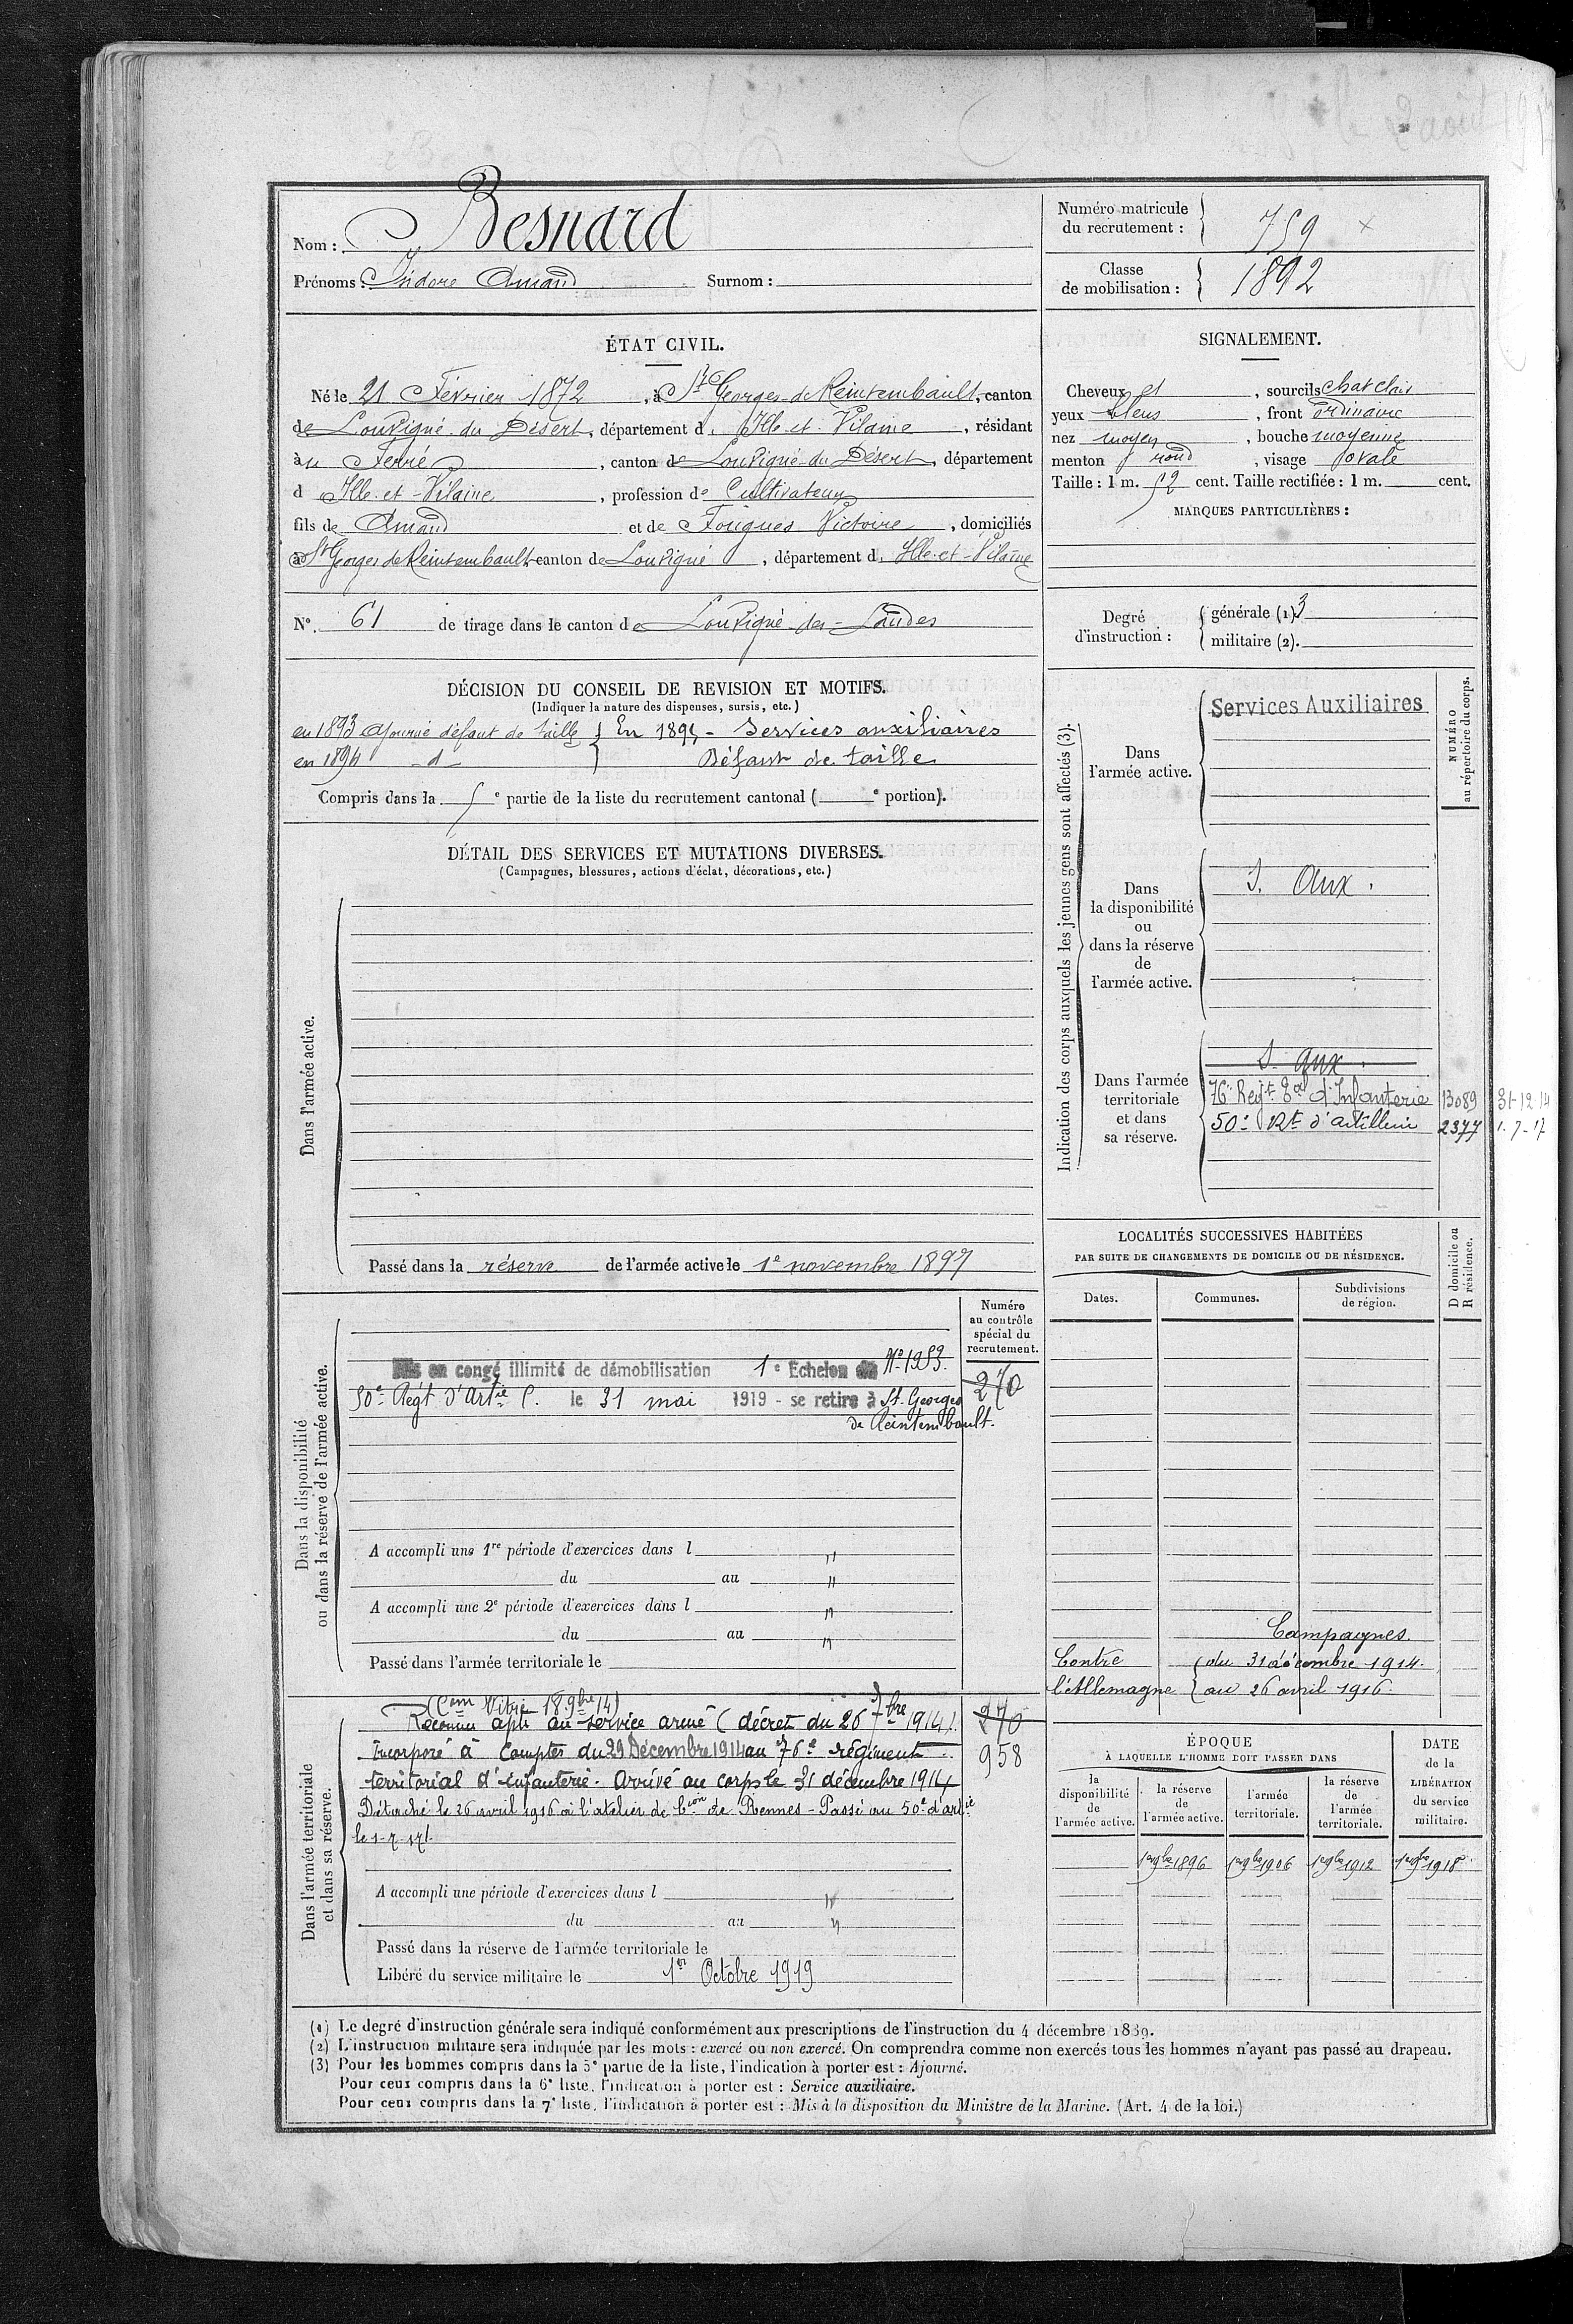 Nom : Besnard
Prénoms : Isidore Amand Surnom :
Numéro matricule du recrutement : 759 x
Classe de mobilisation : 1892
ÉTAT CIVIL.
Né le 21 Février 1872, à St Georges-de-Reintembault, canton
de Louvigné du Désert, département d'Ille-et-Vilaine, résidant
au Ferré, canton de Louvigné-du-Désert, département
d'Ille-et-Vilaine, profession de Cultivateur
fils de Amand et de Fougues Victoire, domiciliés
à St Georges de Reintembault canton de Louvigné, département d'Ille-et-Vilaine
No. 61 de tirage dans le canton de Louvigné-des-Landes
DÉCISION DU CONSEIL DE REVISION ET MOTIFS.
(Indiquer la nature des dispenses, sursis, etc.)
en 1893 ajourné défaut de taille } En 1895 - Services auxiliaires
en 1894 -d- } Défaut de taille
Compris dans la 5e partie de la liste du recrutement cantonal ( e portion).
DÉTAIL DES SERVICES ET MUTATIONS DIVERSES.
(Campagnes, blessures, actions d'éclat, décorations, etc.)
Dans l'armée active.
Passé dans la réserve de l'armée active le 1e novembre 1897
Dans la disponibilité
ou dans la réserve de l'armée active.
Numéro
au contrôle
spécial du
recrutement.
Mis en congé illimité de démobilisation 1e Echelon No 1983.
50e Régt d'Artie C. le 31 mai 1919 - se retire à St. Georges
de Reintembault.
270
A accompli une 1re période d'exercices dans l "
du au "
A accompli une 2e période d'exercices dans l "
du au "
Passé dans l'armée territoriale le
Dans l'armée territoriale
et dans sa réserve.
(Com Vitré 18 9bre 14)
Reconnu apte au service armé (décret du 26 7bre 1914).
Incorporé à compter du 29 Décembre 1914 au 76e régiment
territorial d'infanterie. Arrivé au corps le 31 décembre 1914
Détaché le 26 avril 1916 à l'atelier de Con de Rennes - Passé au 50e d'artie
le 1-7-17.
270
958
A accompli une période d'exercices dans l "
du au "
Passé dans la réserve de l'armée territoriale le
Libéré du service militaire le 1er Octobre 1919
SIGNALEMENT.
Cheveux et, sourcils chat clair
yeux bleus, front ordinaire
nez moyen, bouche moyenne
menton rond, visage ovale
Taille : 1 m. 52 cent. Taille rectifiée : 1 m. cent.
MARQUES PARTICULIÈRES :
Degré d'instruction : générale (1). 3
militaire (2).
Indication des corps auxquels les jeunes gens sont affectés (3).
NUMÉRO
au répertoire du corps.
Dans
l'armée active.
Services Auxiliaires
Dans
la disponibilité
ou
dans la réserve
de
l'armée active.
S. Aux.
Dans l'armée
territoriale
et dans
sa réserve.
S. aux.
76e Regt Tal d'Infanterie 13089 31-12-14
50e Rt d'artillerie 2377 1-7-17
LOCALITÉS SUCCESSIVES HABITÉES
PAR SUITE DE CHANGEMENTS DE DOMICILE OU DE RÉSIDENCE.
D domicile ou
R résidence.
Dates. Communes. Subdivisions
de région.
Campagnes.
Contre { du 31 décembre 1914.
l'Allemagne { au 26 avril 1916.
ÉPOQUE
À LAQUELLE L'HOMME DOIT PASSER DANS
la
disponibilité
de
l'armée active.
la réserve
de
l'armée active.
l'armée
territoriale.
la réserve
de
l'armée
territoriale.
DATE
de la
LIBÉRATION
du service
militaire.
1er 9bre 1896 1er 9bre 1906 1er 9bre 1912 1er 9bre 1918
(1) Le degré d'instruction générale sera indiqué conformément aux prescriptions de l'instruction du 4 décembre 1889.
(2) L'instruction militaire sera indiquée par les mots : exercé ou non exercé. On comprendra comme non exercés tous les hommes n'ayant pas passé au drapeau.
(3) Pour les hommes compris dans la 5e partie de la liste, l'indication à porter est : Ajourné.
Pour ceux compris dans la 6e liste, l'indication à porter est : Service auxiliaire.
Pour ceux compris dans la 7e liste, l'indication à porter est : Mis à la disposition du Ministre de la Marine. (Art. 4 de la loi.)